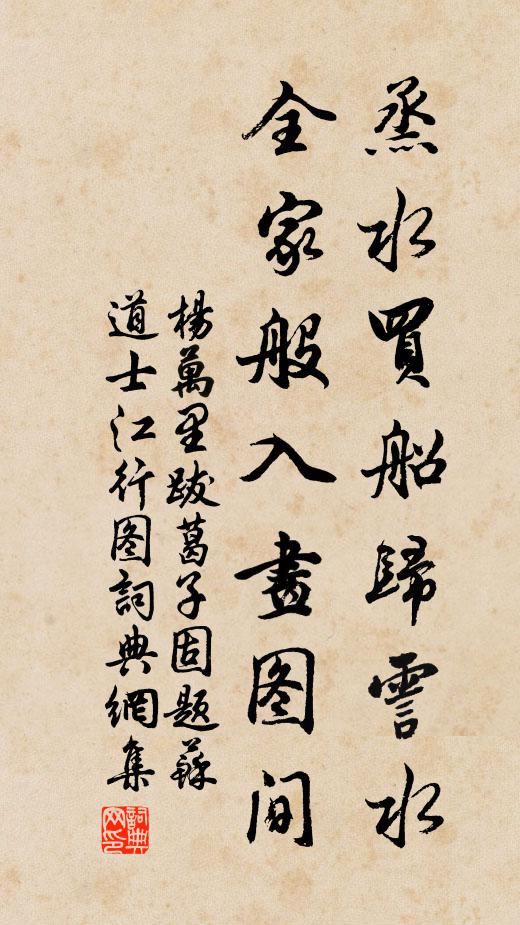 烝水買船歸霅水
全家般入畫图间
楊萬里跋葛子固题蘇
道士江行图詞典網集
詞典网印